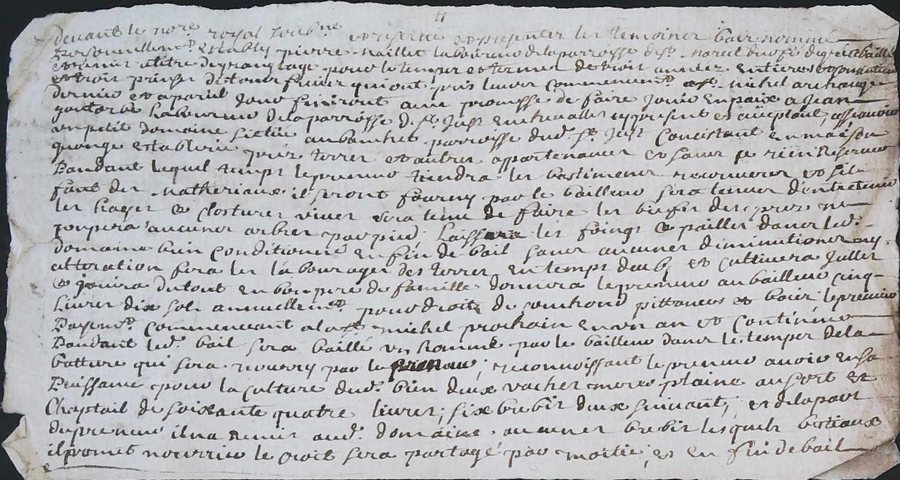 devant le nore royal soubne et presents les temoins bas nommes
personnellemt estably pierre Maillet laboureur de la parroisse de st
a titre de grangeage pour le temps et terme de trois années entieres et
et trois prises de tous fruits qui ont pris leur commencemt st michel archange
dernier et a pareil jour finiront avec promesse de faire jouir en paix a Jean
laboureur de la parroisse de st Just en chevallet cy present et acceptant assavoir
un petit domaine situé au parroisse dud. st Just Consistant en maison
grange estableries prés terres et autres appartenances et sans se rien reserver
Pendant lequel temps le preneur tiendra les bastiments recouverts et
fait des matheriaux il seront fourny par le bailleur sera tenus d'entretenir
les hayes & clostures vives sera tenu de faire les des prés ne
coupera aucuns arbres par pied Laissera les foings & pailles dans led.
domaine bien conditionné en fin de bail sans aucunes diminutions ny
altoration fera les labourages des terres en temps deub et cultivera
& jouira du tout en bon pere de famille donnera le preneur au bailleur cinq
Livres dix sols annuellemt pour droits de pittances et le premier
Payemt Commencant a la st michel prochain en un an et Continuera
Pandant led. bail sera baillé un homme par le bailleur dans le temps de la
batture qui sera nourry par le preneur; reconnoissant le preneur avoir en sa
Puissance pour la culture dud. bien deux vaches meres plaine au sort et
Chaptail de soixante quatre livres; six brebis deux suivants; et de la part
du preneur il n'a remis aud. domaine aucunes brebis lesquels bestiaux
il promet nourrir le croit sera partagé par moitié, et en fin de bail